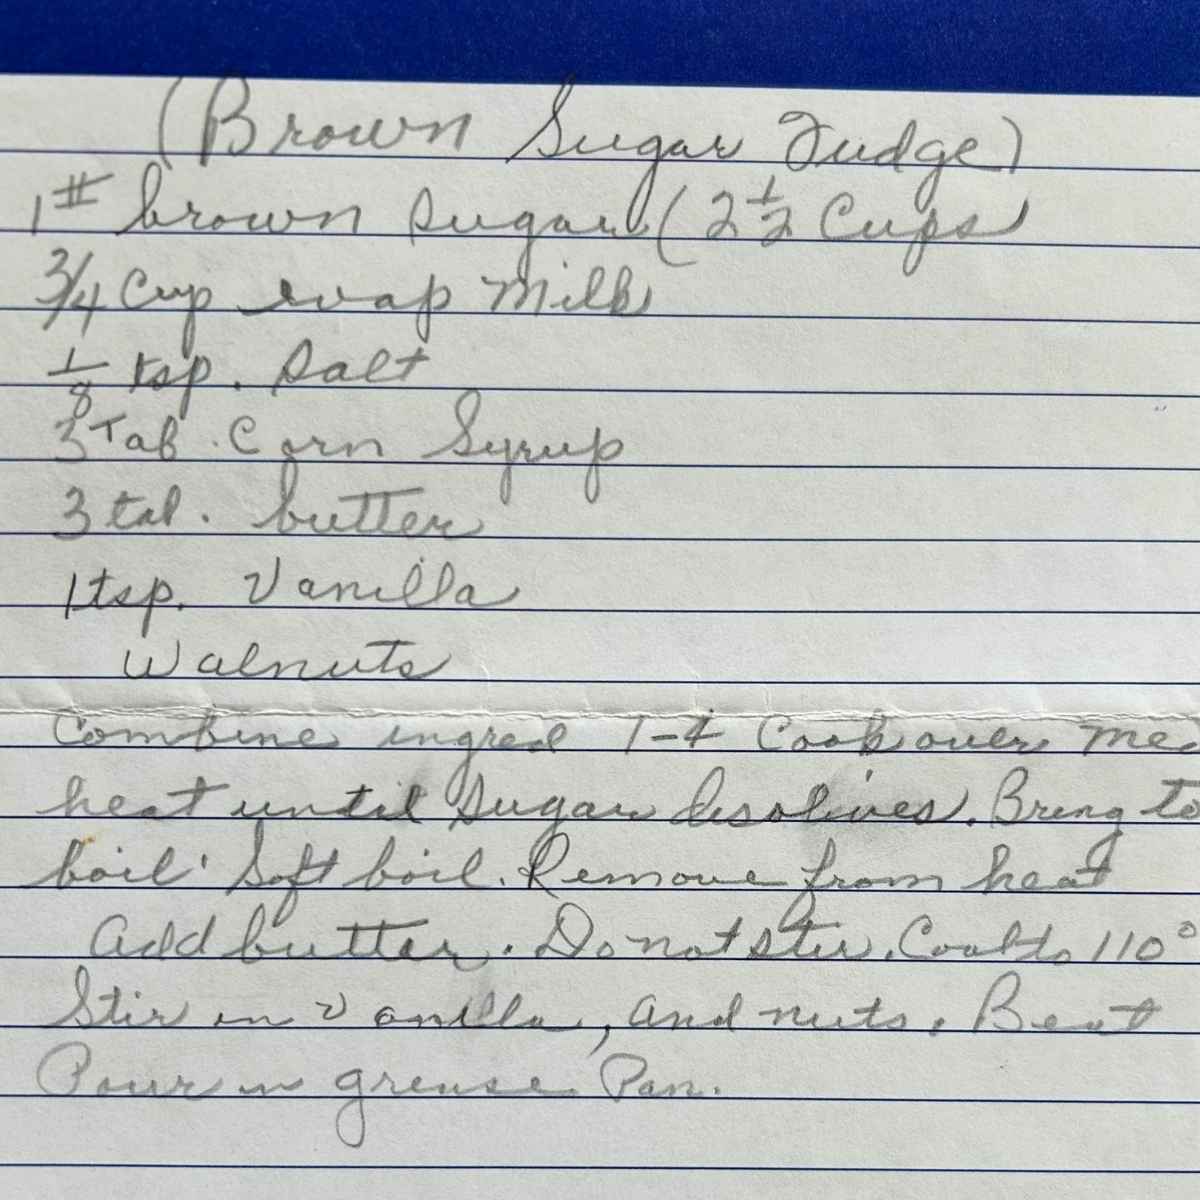 (Brown Sugar Fudge)
1# brown sugar (2 1/2 Cups
3/4 Cup evap Milk
1/8 tsp. salt
3 Tab. Corn Syrup
3 tab. butter
1 tsp. Vanilla
Walnuts
Combine ingred 1-4 Cook over med
heat until sugar disolives. Bring to
boil' Soft boil. Remove from heat
Add butter. Do not stir. Cool to 110°
Stir in Vanilla, and nuts. Beat
Pour in grease Pan.